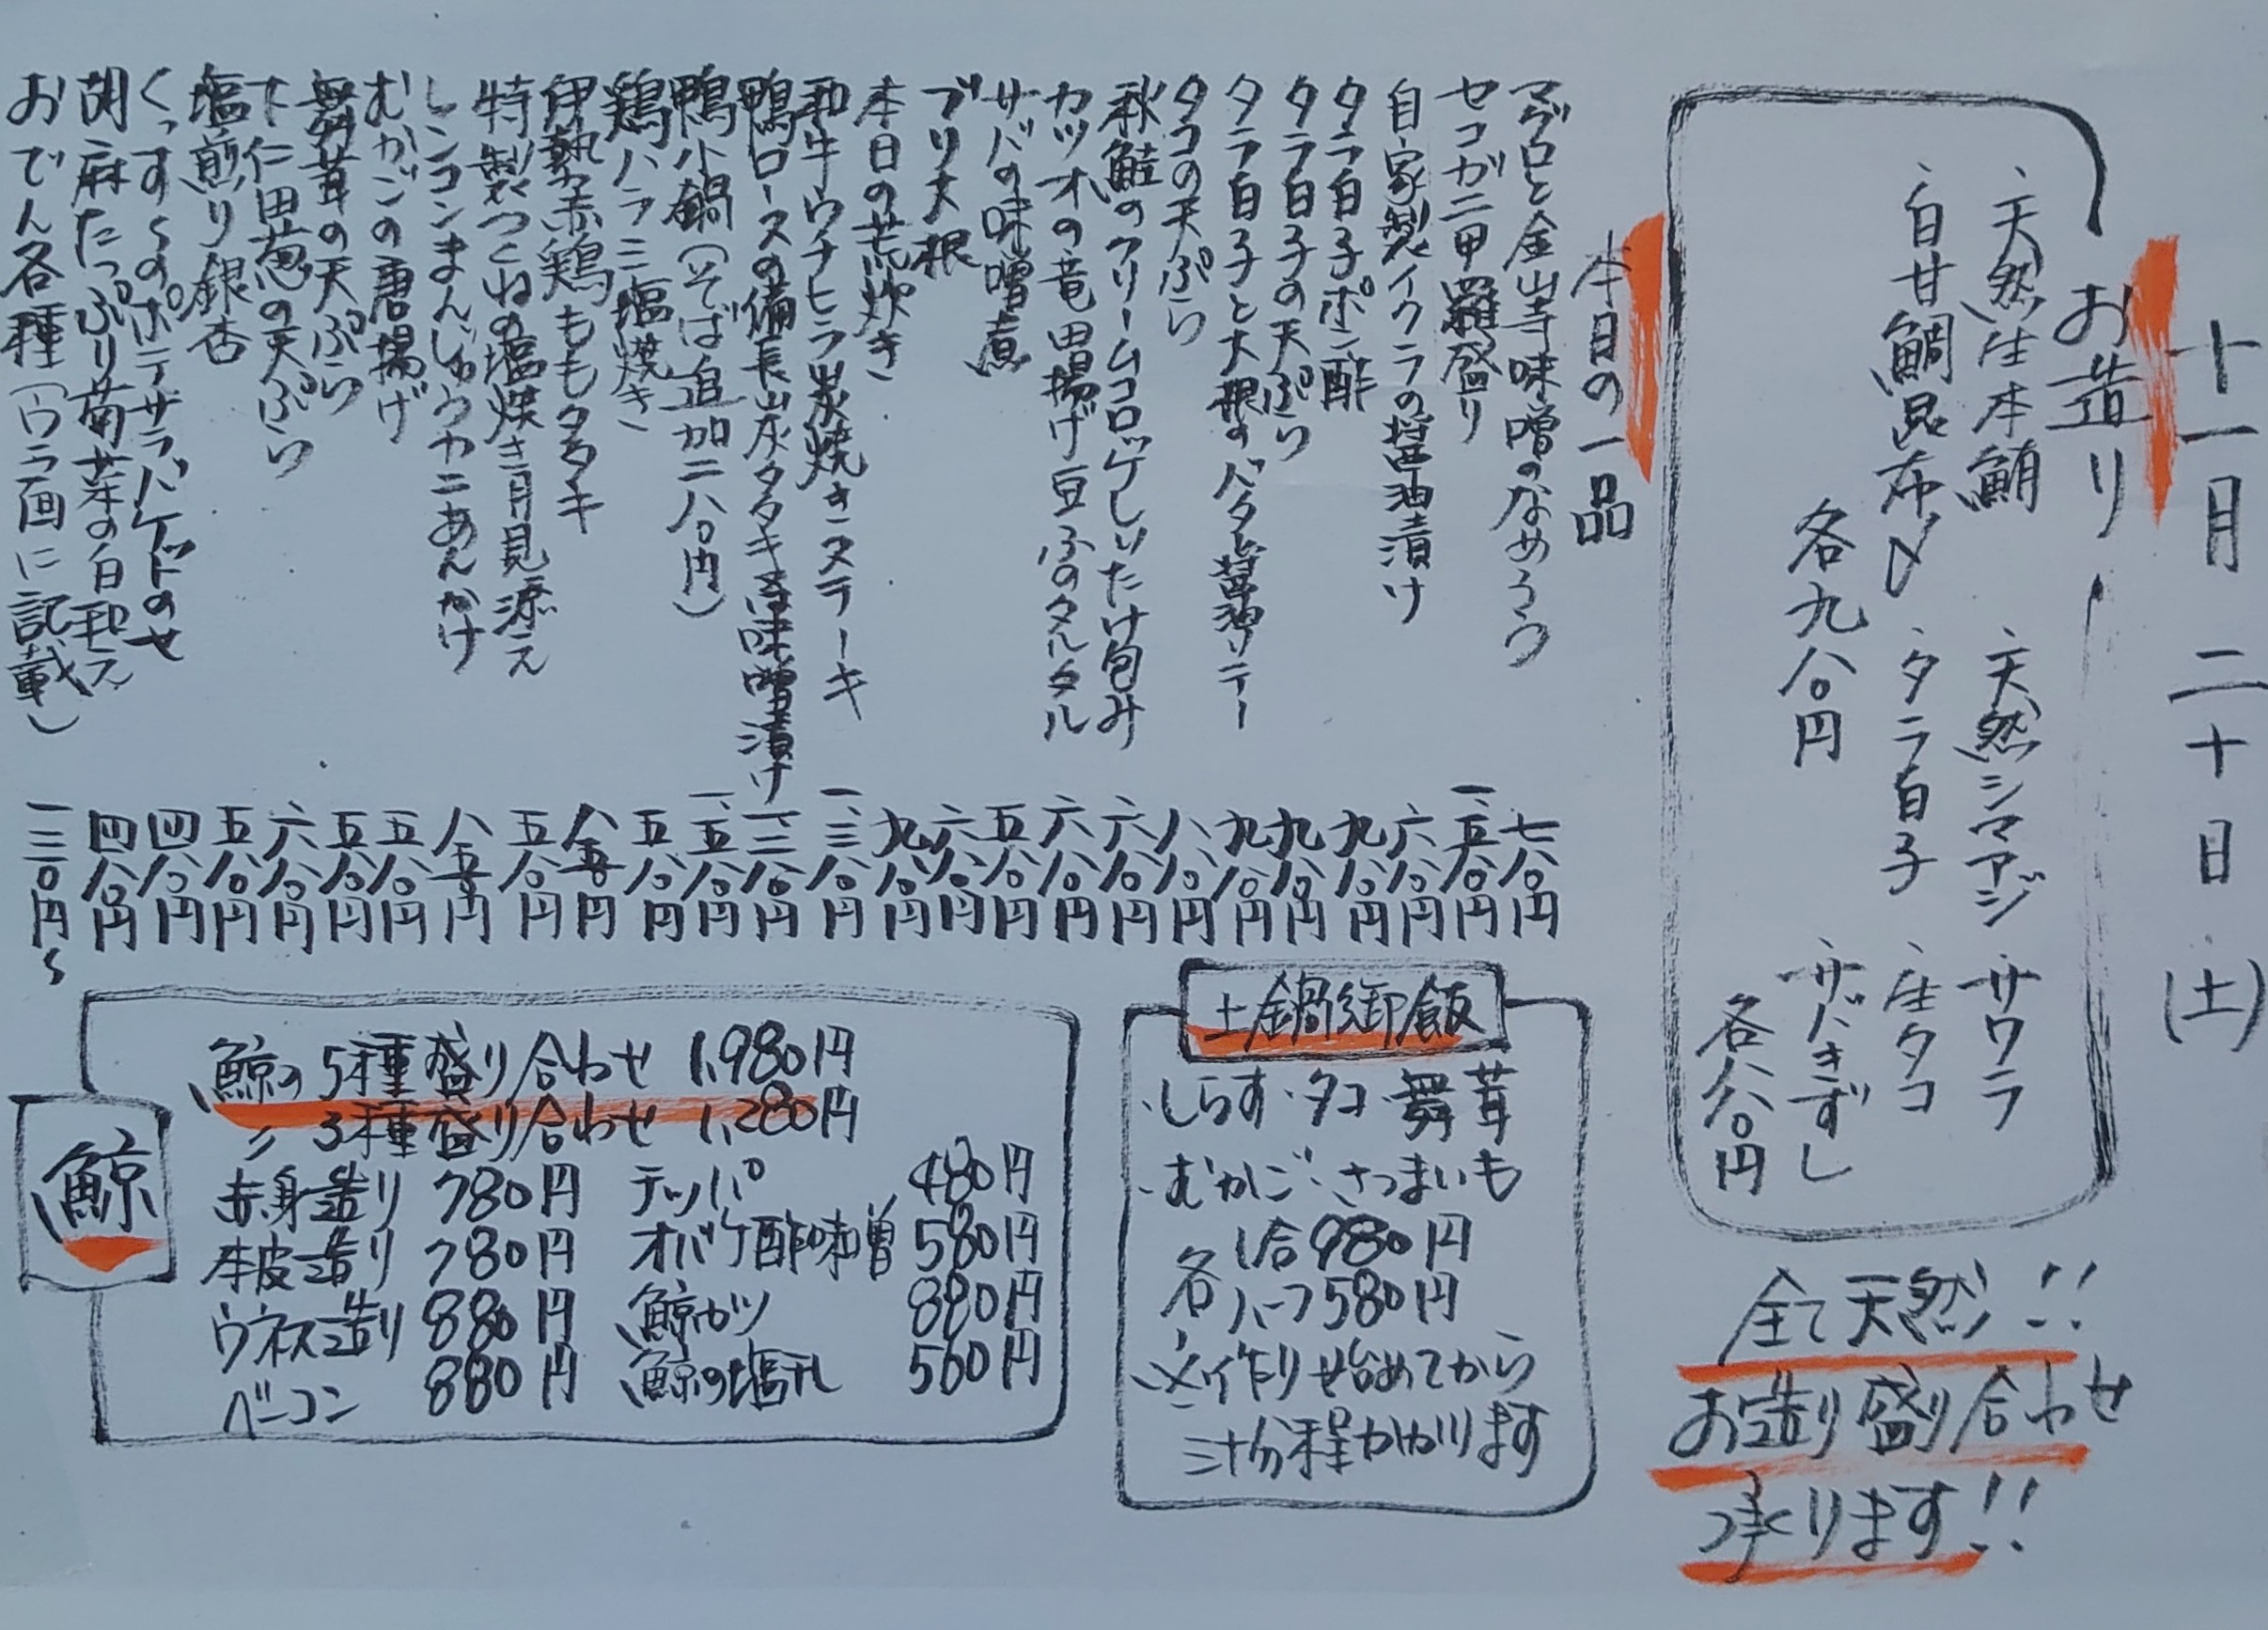 十一月二十日(土)
お造り
・天然生本鮪 ・天然シマアジ ・サワラ
・白甘鯛昆布〆 ・タラ白子 ・生タコ
各九八〇円 ・サバきずし
各八八〇円
全て天然!!
お造り盛り合わせ
承ります!!
本日の一品
マグロと金山寺味噌のなめろう 七八〇円
セコガニ甲羅盛り 一、五八〇円
自家製イクラの醤油漬け 六八〇円
タラ白子ポン酢 九八〇円
タラ白子の天ぷら 九八〇円
タラ白子と大根のバター醤油ソテー 九八〇円
タコの天ぷら 八八〇円
秋鮭のクリームコロッケしいたけ包み 六八〇円
カツオの竜田揚げ豆ふのタルタル 六八〇円
サバの味噌煮 五八〇円
ブリ大根 六八〇円
本日の荒炊き 九八〇円
和牛ウチヒラ炭焼きステーキ 一、三八〇円
鴨ロースの備長炭タタキ 味噌漬け 一、二八〇円
鴨小鍋(そば追加二八〇円) 一、五八〇円
鶏ハラミ塩焼き 五八〇円
伊勢赤鶏ももタタキ 八五〇円
特製つくねの塩焼き月見添え 五八〇円
レンコンまんじゅうカニあんかけ 八五〇円
むかごの唐揚げ 五八〇円
舞茸の天ぷら 五八〇円
下仁田葱の天ぷら 六八〇円
塩煎り銀杏 五八〇円
くっす〜のポテサラバケットのせ 四八〇円
胡麻たっぷり菊菜の白和え 四八〇円
おでん各種(ウラ面に記載) 一三〇円〜
土鍋御飯
・しらす・タコ・舞茸
・むかご・さつまいも
各 1合980円
ハーフ580円
※作り始めてから
三十分程かかります
鯨
鯨の5種盛り合わせ 1,980円
〃 3種盛り合わせ 1,280円
赤身造り 780円 テッパ 480円
本皮造り 780円 オバケ酢味噌 580円
ウネス造り 880円 鯨カツ 880円
ベーコン 880円 鯨の塩タレ 500円